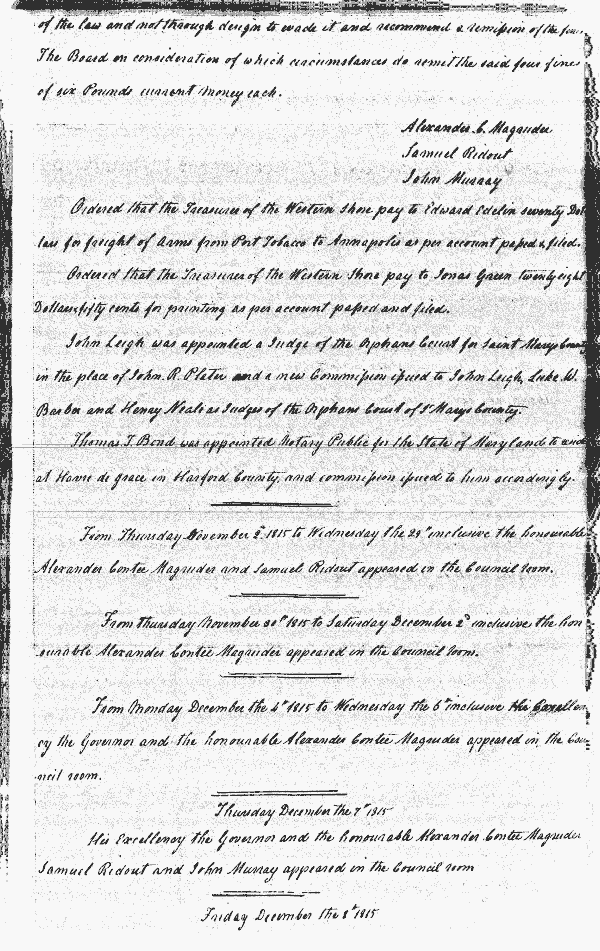 of the law and not through design to evade it and recommend a remission of the fine
The Board on consideration of which circumstances do remit the said four fines
of six Pounds current money each.
Alexander C. Magruder
Samuel Ridout
John Murray
Ordered that the Treasurer of the Western Shore pay to Edward Edelin seventy Dol
lars for freight of Arms from Port Tobacco to Annapolis as per account passed & filed.
Ordered that the Treasurer of the Western Shore pay to Jonas Green twenty eight
Dollars & fifty cents for printing as per account passed and filed.
John Leigh was appointed a Judge of the Orphans Court for Saint Marys County
in the place of John R. Plater and a new Commission issued to John Leigh, Luke W.
Barber and Henry Neale as Judges of the Orphans Court of St Marys County.
Thomas T. Bond was appointed Notary Public for the State of Maryland to and
at Havre de grace in Harford County, and commission issued to him accordingly.
From Thursday November 2d. 1815 to Wednesday the 29th inclusive the honourable
Alexander Contee Magruder and Samuel Ridout appeared in the Council room.
From Thursday November 30th 1815 to Saturday December 2d inclusive the hon
ourable Alexander Contee Magruder appeared in the Council room.
From Monday December the 4th 1815 to Wednesday the 6th inclusive His Excellen
cy the Governor and the honourable Alexander Contee Magruder appeared in the Cou
ncil room.
Thursday December the 7th 1815
His Excellency the Governor and the honourable Alexander Contee Magruder
Samuel Ridout and John Murray appeared in the Council room
Friday December the 8th 1815